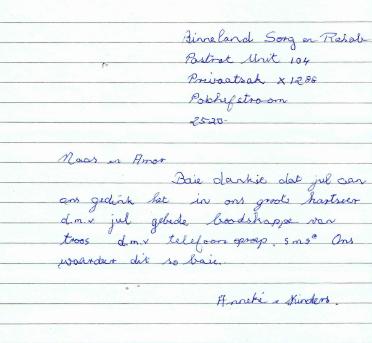 Binneland Sorg en Rehab
Postnet Unit 104
Privaatsak X1288
Potchefstroom
2520
Naas en Amor
Baie dankie dat jul aan
ons gedink het in ons groot hartseer
d.m.v jul gebede boodskappe van
troos d.m.v telefoon oproep, sms^e Ons
waardeer dit so baie.
Anneke n kinders.